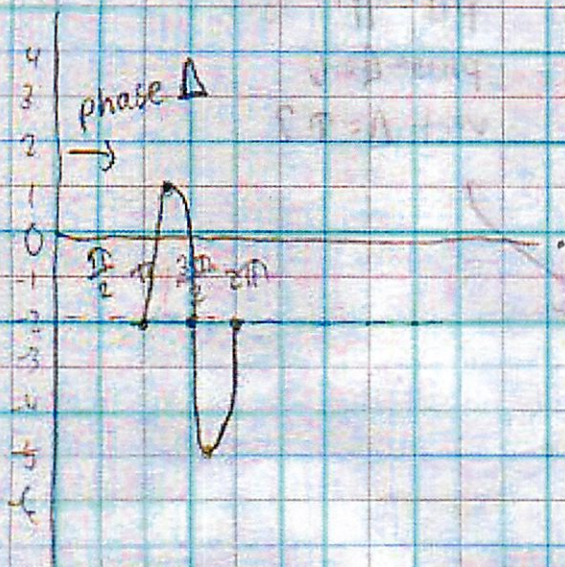 4
3
phase Δ
2
→
1
0
-1
π/2 π 3π/2 2π
-2
-3
-4
-5